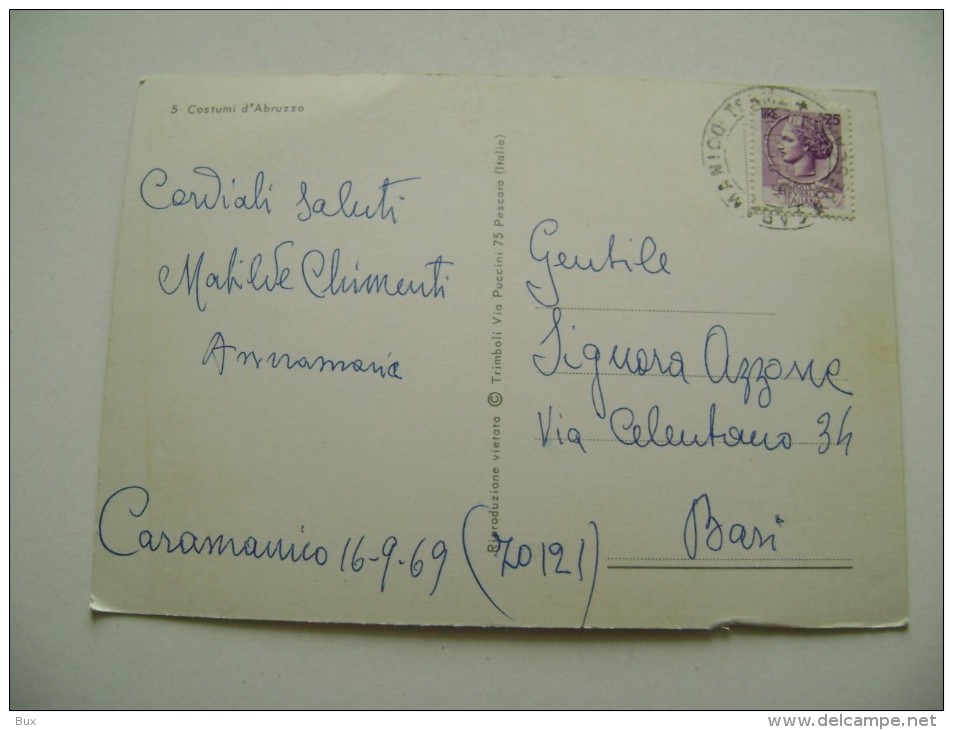 5 Costumi d'Abruzzo
Cordiali saluti
Matilde Chimenti
Annamaria
Caramanico 16-9-69 (70121)
Riproduzione vietata © Trimboli Via Puccini 75 Pescara (Italia)
CARAMANICO TERME
LIRE 25
REPUBBLICA
ITALIANA
Gentile
Signora Azzone
Via Celentano 34
Bari
Bux
www.delcampe.net